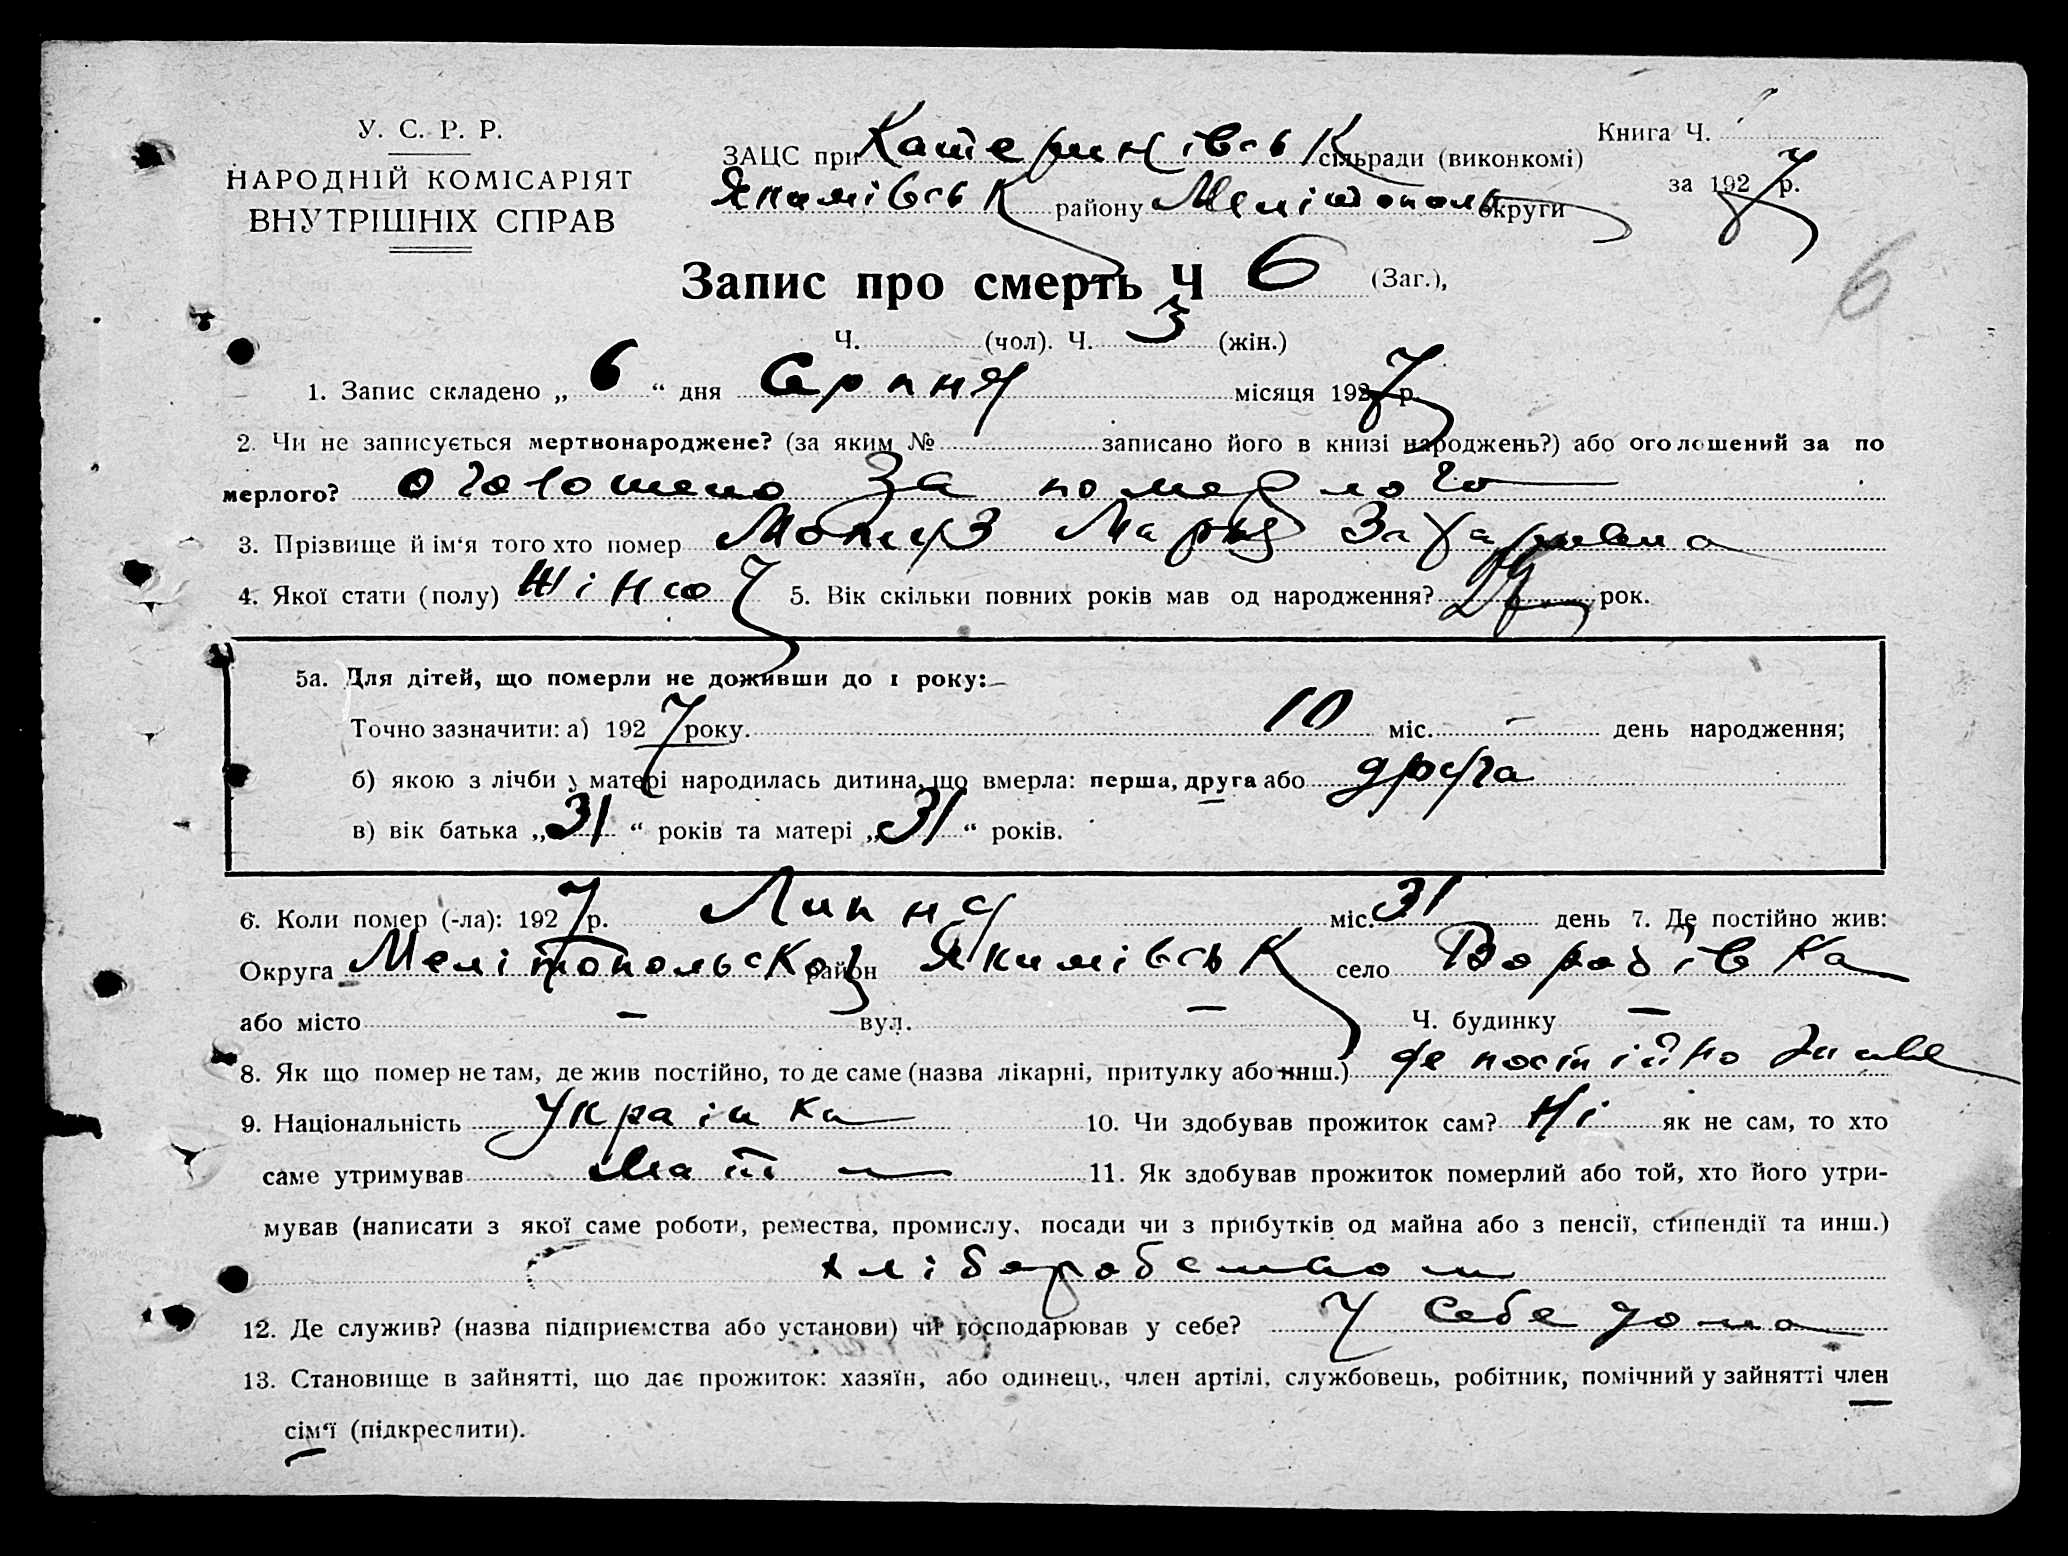 У. С. Р. Р.
НАРОДНІЙ КОМІСАРІЯТ
ВНУТРІШНІХ СПРАВ
Книга Ч.
ЗАЦС при Катеринівськ сільради (виконкомі)
за 1927 р.
Якимівськ району Мелітополь округи
Запис про смерть Ч 6 (Заг.),
6
Ч. (чол). Ч. 3 (жін.)
1. Запис складено „ 6 “ дня Серпня місяця 1927 р.
2. Чи не записується мертвонароджене? (за яким № записано його в книзі народжень?) або оголошений за по
мерлого? оголошено за померлого
3. Прізвище й ім‘я того хто помер Марія Захаровна
4. Якої стати (полу) 5. Вік скільки повних років мав од народження? рок.
5а. Для дітей, що померли не доживши до 1 року:
Точно зазначити: а) 1927 року. 10 міс. – день народження;
б) якою з лічби у матері народилась дитина, що вмерла: перша, друга або друга
в) вік батька „ 31 “ років та матері „ 31 “ років.
6. Коли помер (-ла): 1927 р. Липня міс. 31 день 7. Де постійно жив:
Округа Мелітопольської район Якимівськ село Воробівка
або місто – вул. – Ч. будинку –
8. Як що помер не там, де жив постійно, то де саме (назва лікарні, притулку або инш.) де постійно
9. Національність Українка 10. Чи здобував прожиток сам? Ні як не сам, то хто
саме утримував Мати 11. Як здобував прожиток померлий або той, хто його утри-
мував (написати з якої саме роботи, ремества, промислу, посади чи з прибутків од майна або з пенсії, стипендії та инш.)
хліборобством
12. Де служив? (назва підприємства або установи) чи господарював у себе? У себе дома
13. Становище в зайнятті, що дає прожиток: хазяїн, або одинець, член артілі, службовець, робітник, помічний у зайнятті член
сім‘ї (підкреслити).